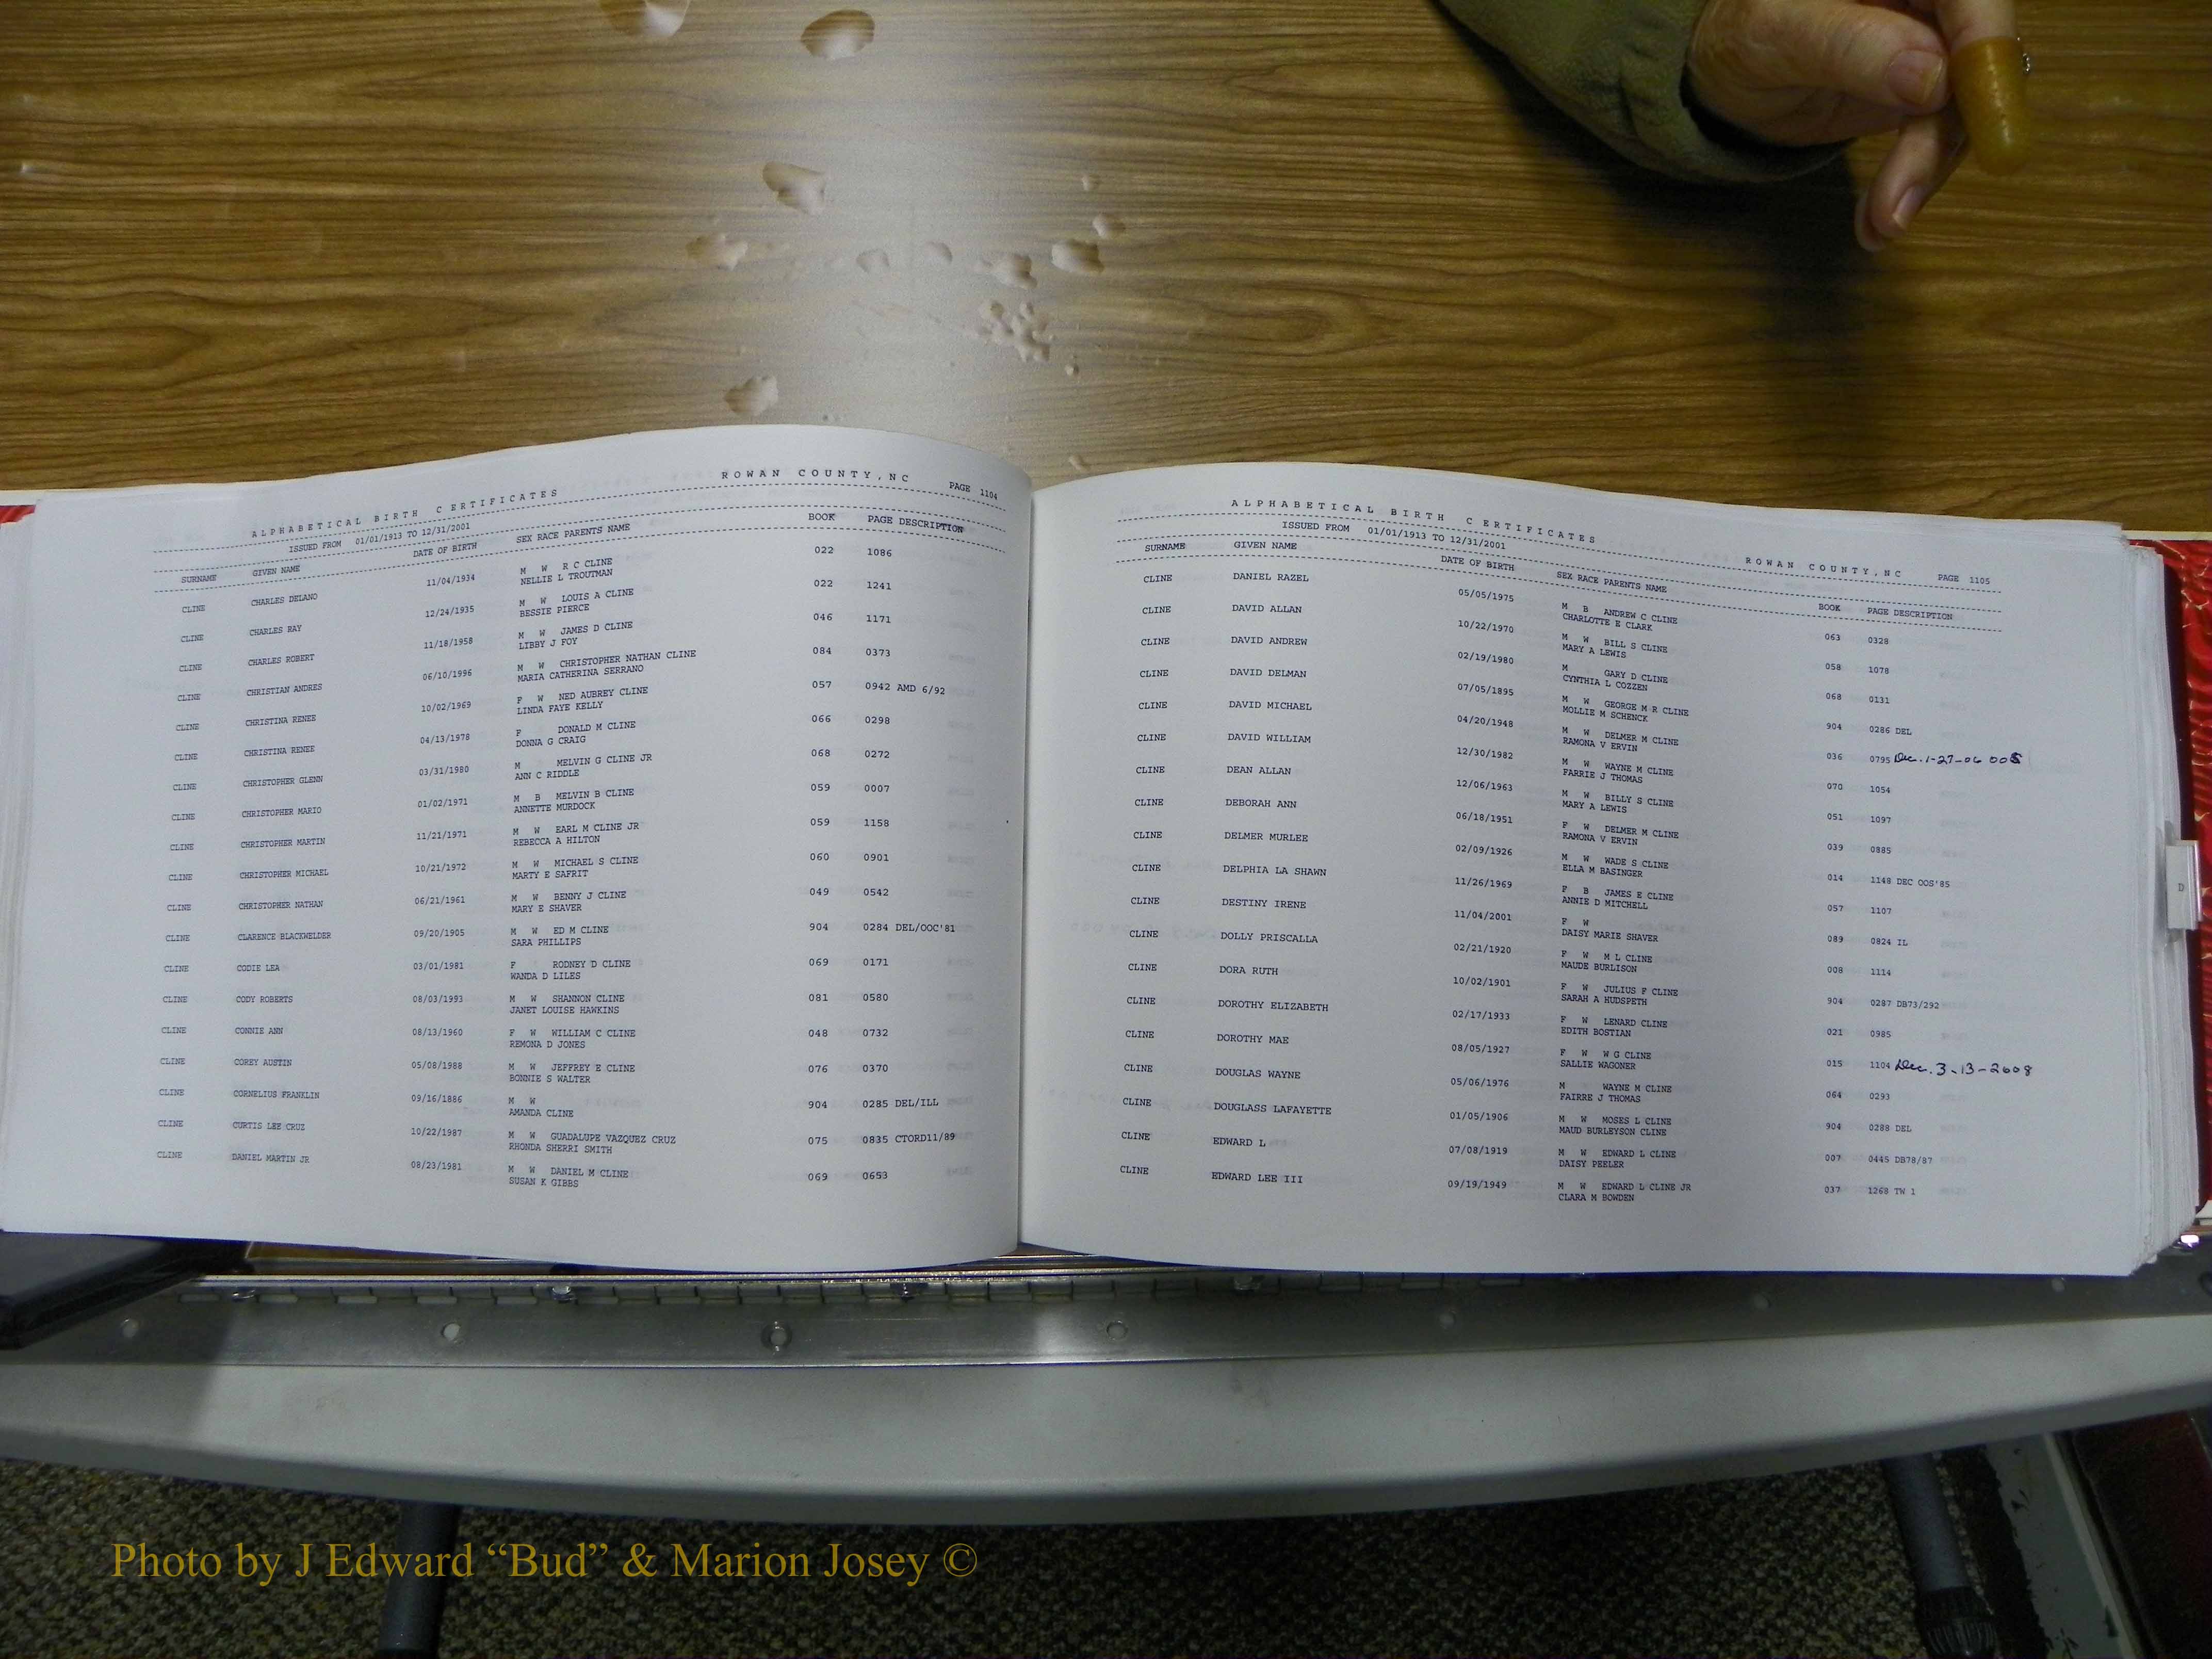 ALPHABETICAL BIRTH CERTIFICATES ROWAN COUNTY, NC PAGE 1104
ISSUED FROM 01/01/1913 TO 12/31/2001
SURNAME GIVEN NAME DATE OF BIRTH SEX RACE PARENTS NAME BOOK PAGE DESCRIPTION
CLINE CHARLES DELANO 11/04/1934 M W R C CLINE 022 1086
NELLIE L TROUTMAN
CLINE CHARLES RAY 12/24/1935 M W LOUIS A CLINE 022 1241
BESSIE PIERCE
CLINE CHARLES ROBERT 11/18/1958 M W JAMES D CLINE 046 1171
LIBBY J FOY
CLINE CHRISTIAN ANDRES 06/10/1996 M W CHRISTOPHER NATHAN CLINE 084 0373
MARIA CATHERINA SERRANO
CLINE CHRISTINA RENEE 10/02/1969 F W NED AUBREY CLINE 057 0942 AMD 6/92
LINDA FAYE KELLY
CLINE CHRISTINA RENEE 04/13/1978 F DONALD M CLINE 066 0298
DONNA G CRAIG
CLINE CHRISTOPHER GLENN 03/31/1980 M MELVIN G CLINE JR 068 0272
ANN C RIDDLE
CLINE CHRISTOPHER MARIO 01/02/1971 M B MELVIN B CLINE 059 0007
ANNETTE MURDOCK
CLINE CHRISTOPHER MARTIN 11/21/1971 M W EARL M CLINE JR 059 1158
REBECCA A HILTON
CLINE CHRISTOPHER MICHAEL 10/21/1972 M W MICHAEL S CLINE 060 0901
MARTY E SAFRIT
CLINE CHRISTOPHER NATHAN 06/21/1961 M W BENNY J CLINE 049 0542
MARY E SHAVER
CLINE CLARENCE BLACKWELDER 09/20/1905 M W ED M CLINE 904 0284 DEL/OOC'81
SARA PHILLIPS
CLINE CODIE LEA 03/01/1981 F RODNEY D CLINE 069 0171
WANDA D LILES
CLINE CODY ROBERTS 08/03/1993 M W SHANNON CLINE 081 0580
JANET LOUISE HAWKINS
CLINE CONNIE ANN 08/13/1960 F W WILLIAM C CLINE 048 0732
REMONA D JONES
CLINE COREY AUSTIN 05/08/1988 M W JEFFREY E CLINE 076 0370
BONNIE S WALTER
CLINE CORNELIUS FRANKLIN 09/16/1886 M W 904 0285 DEL/ILL
AMANDA CLINE
CLINE CURTIS LEE CRUZ 10/22/1987 M W GUADALUPE VAZQUEZ CRUZ 075 0835 CTORD11/89
RHONDA SHERRI SMITH
CLINE DANIEL MARTIN JR 08/23/1981 M W DANIEL M CLINE 069 0653
SUSAN K GIBBS
ALPHABETICAL BIRTH CERTIFICATES ROWAN COUNTY, NC PAGE 1105
ISSUED FROM 01/01/1913 TO 12/31/2001
SURNAME GIVEN NAME DATE OF BIRTH SEX RACE PARENTS NAME BOOK PAGE DESCRIPTION
CLINE DANIEL RAZEL 05/05/1975 M B ANDREW C CLINE 063 0328
CHARLOTTE E CLARK
CLINE DAVID ALLAN 10/22/1970 M W BILL S CLINE 058 1078
MARY A LEWIS
CLINE DAVID ANDREW 02/19/1980 M GARY D CLINE 068 0131
CYNTHIA L COZZEN
CLINE DAVID DELMAN 07/05/1895 M W GEORGE M R CLINE 904 0286 DEL
MOLLIE M SCHENCK
CLINE DAVID MICHAEL 04/20/1948 M W DELMER M CLINE 036 0795 Dec. 1-27-06 OOS
RAMONA V ERVIN
CLINE DAVID WILLIAM 12/30/1982 M W WAYNE M CLINE 070 1054
FARRIE J THOMAS
CLINE DEAN ALLAN 12/06/1963 M W BILLY S CLINE 051 1097
MARY A LEWIS
CLINE DEBORAH ANN 06/18/1951 F W DELMER M CLINE 039 0885
RAMONA V ERVIN
CLINE DELMER MURLEE 02/09/1926 M W WADE S CLINE 014 1148 DEC OOS'85
ELLA M BASINGER
CLINE DELPHIA LA SHAWN 11/26/1969 F B JAMES E CLINE 057 1107
ANNIE D MITCHELL
CLINE DESTINY IRENE 11/04/2001 F W 089 0824 IL
DAISY MARIE SHAVER
CLINE DOLLY PRISCALLA 02/21/1920 F W M L CLINE 008 1114
MAUDE BURLISON
CLINE DORA RUTH 10/02/1901 F W JULIUS F CLINE 904 0287 DB73/292
SARAH A HUDSPETH
CLINE DOROTHY ELIZABETH 02/17/1933 F W LENARD CLINE 021 0985
EDITH BOSTIAN
CLINE DOROTHY MAE 08/05/1927 F W W G CLINE 015 1104 Dec. 3-13-2008
SALLIE WAGONER
CLINE DOUGLAS WAYNE 05/06/1976 M WAYNE M CLINE 064 0293
FAIRRE J THOMAS
CLINE DOUGLASS LAFAYETTE 01/05/1906 M W MOSES L CLINE 904 0288 DEL
MAUD BURLEYSON CLINE
CLINE EDWARD L 07/08/1919 M W EDWARD L CLINE 007 0445 DB78/87
DAISY PEELER
CLINE EDWARD LEE III 09/19/1949 M W EDWARD L CLINE JR 037 1268 TW 1
CLARA M BOWDEN
D
Photo by J Edward “Bud” & Marion Josey ©